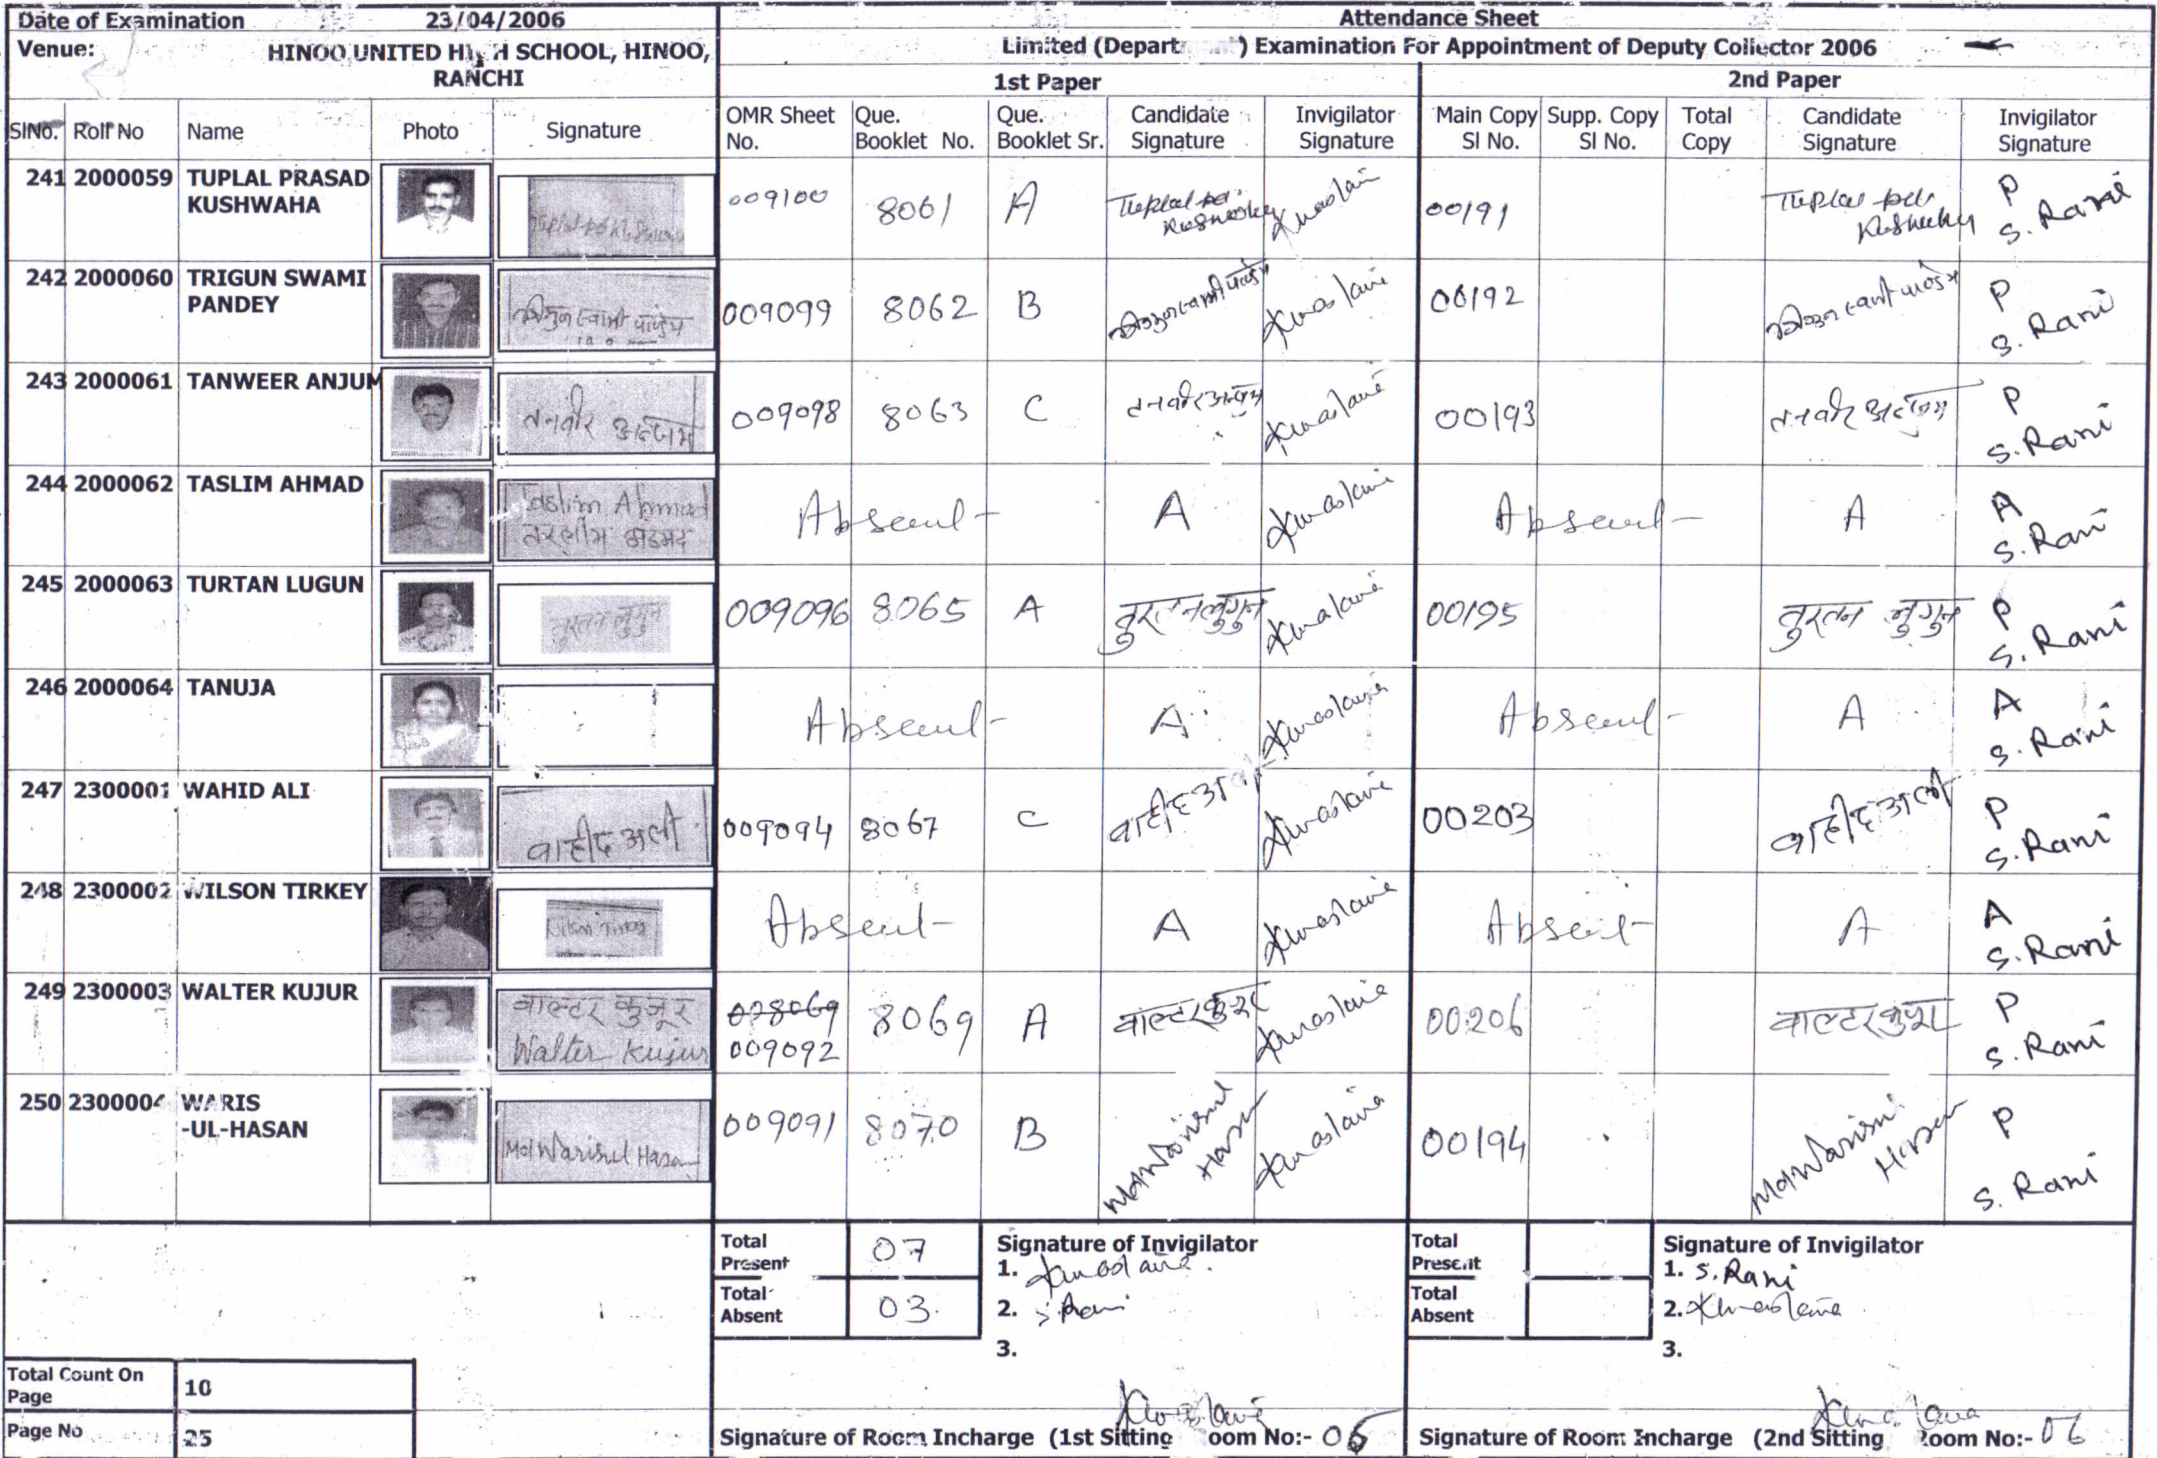 Date of Examination 23/04/2006 Attendance Sheet
Venue: HINOO UNITED HIGH SCHOOL, HINOO, RANCHI
Limited (Department) Examination For Appointment of Deputy Collector 2006
1st Paper 2nd Paper
SlNo. Roll No Name Photo Signature OMR Sheet No. Que. Booklet No. Que. Booklet Sr. Candidate Signature Invigilator Signature Main Copy Sl No. Supp. Copy Sl No. Total Copy Candidate Signature Invigilator Signature
241 2000059 TUPLAL PRASAD KUSHWAHA 009100 8061 A 00191 P S. Rani
242 2000060 TRIGUN SWAMI PANDEY त्रिगुन स्वामी पाण्डेय 009099 8062 B 00192 P S. Rani
243 2000061 TANWEER ANJUM तनवीर अन्जुम 009098 8063 C तनवीर अन्जुम 00193 तनवीर अन्जुम P S. Rani
244 2000062 TASLIM AHMAD Taslim Ahmad तस्लीम अहमद Absent A Absent A A S. Rani
245 2000063 TURTAN LUGUN तुरतन लुगुन 009096 8065 A तुरतन लुगुन 00195 तुरतन लुगुन P S. Rani
246 2000064 TANUJA Absent A Absent A A S. Rani
247 2300001 WAHID ALI वाहीद अली 009094 8067 C वाहीद अली 00203 वाहीद अली P S. Rani
248 2300002 WILSON TIRKEY Wilson Tirkey Absent A Absent A A S. Rani
249 2300003 WALTER KUJUR वाल्टर कुजूर Walter Kujur 009092 8069 A वाल्टर कुजूर 00206 वाल्टर कुजूर P S. Rani
250 2300004 WARIS -UL-HASAN Md Warisul Hasan 009091 8070 B Md Warisul Hasan 00194 Md Warisul Hasan P S. Rani
Total Present 07 Signature of Invigilator Total Present Signature of Invigilator
1. 1. S. Rani
Total Absent 03 2. S. Rani Total Absent 2.
3. 3.
Total Count On Page 10
Page No 25
Signature of Room Incharge (1st Sitting Room No:- 06 Signature of Room Incharge (2nd Sitting Room No:- 06